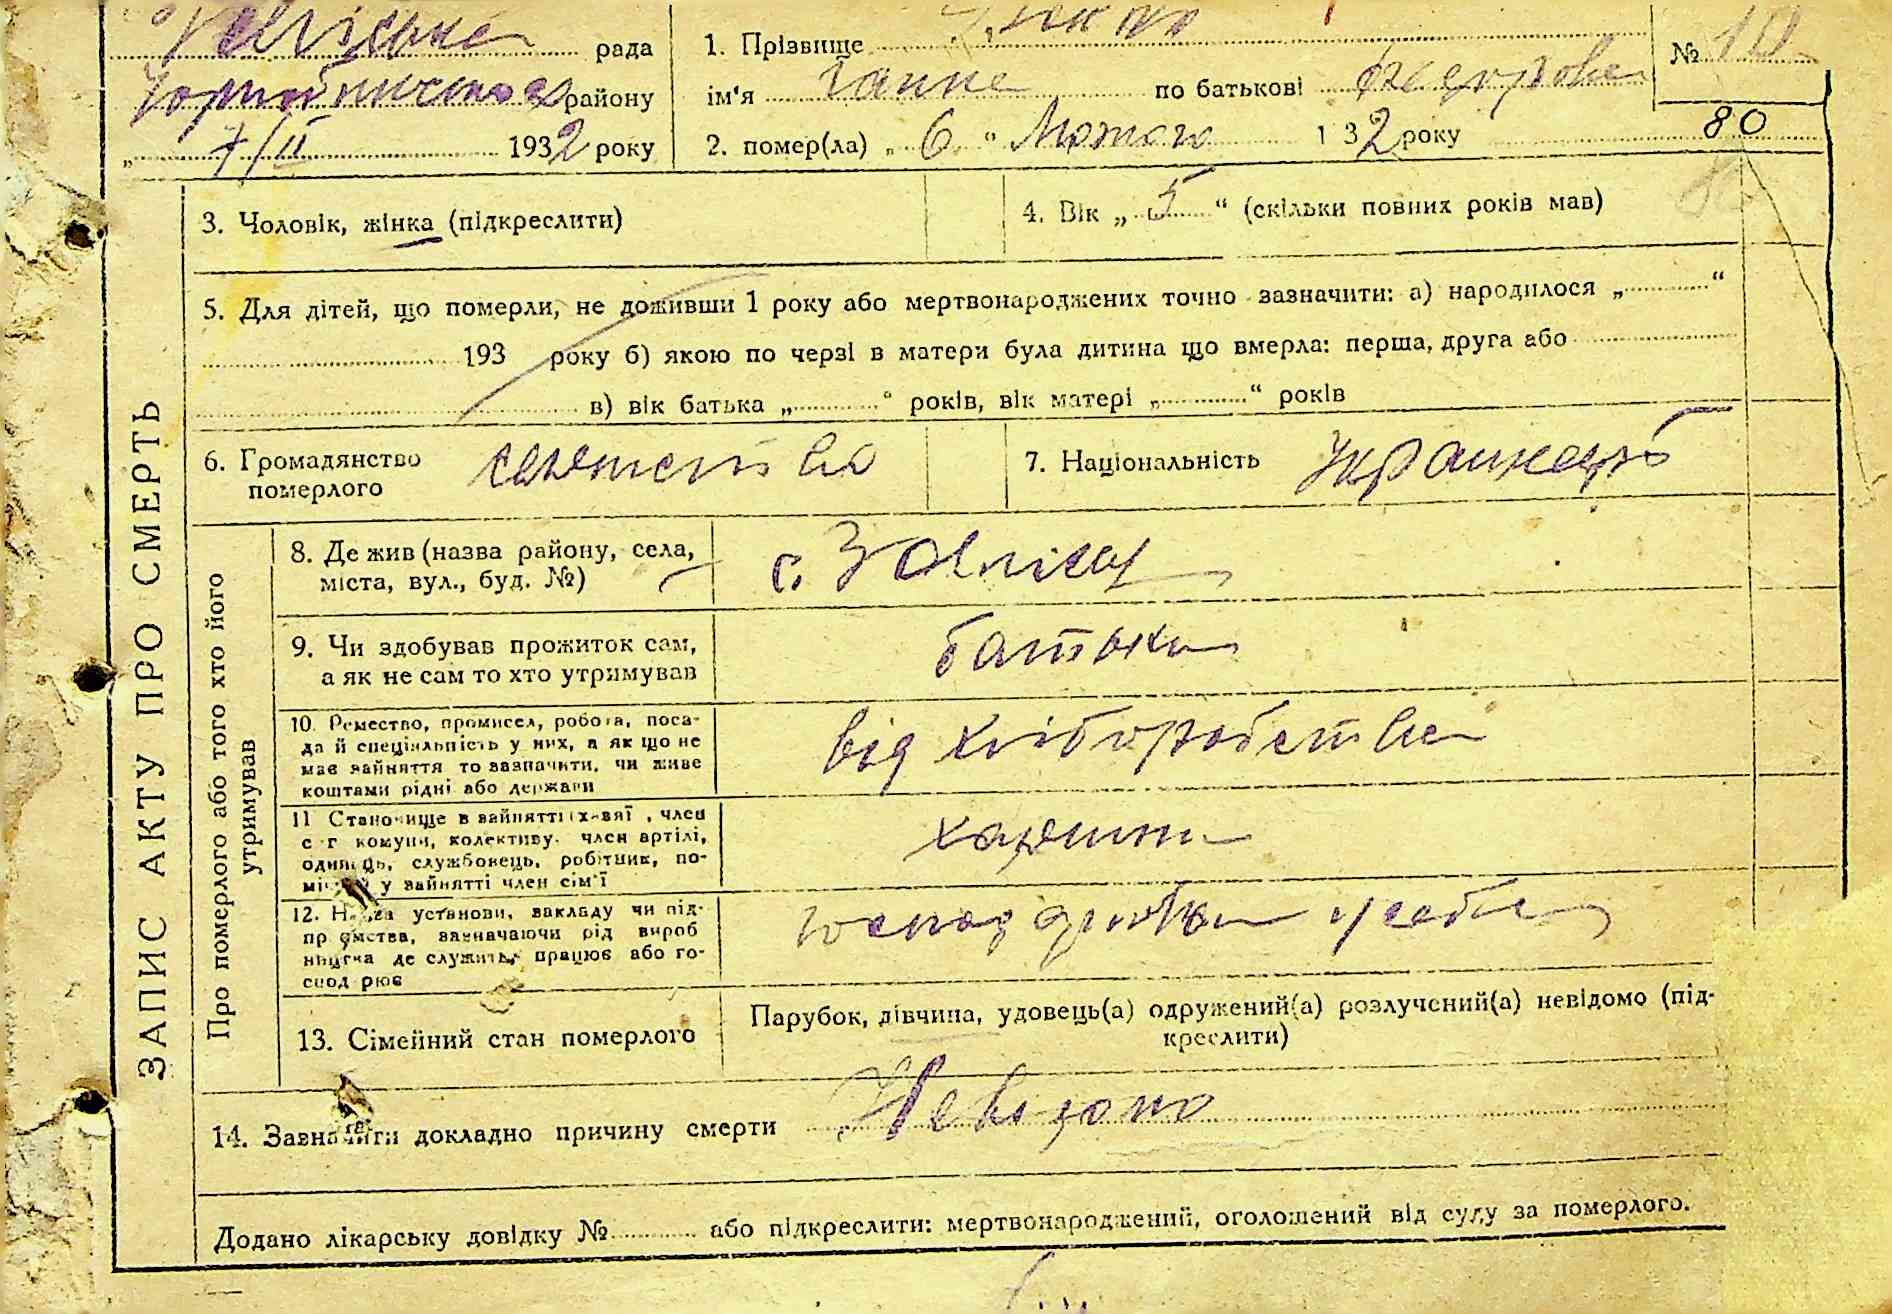 рада
району
„ 7/II 1932 року
1. Прізвище
ім'я Ганна по батькові
№ 10
2. помер(ла) „ 6 “ Лютого 1 32 року
80
ЗАПИС АКТУ ПРО СМЕРТЬ
3. Чоловік, жінка (підкреслити)
4. Вік „ 5 “ (скільки повних років мав)
5. Для дітей, що померли, не доживши 1 року або мертвонароджених точно зазначити: а) народилося „ “
193 року б) якою по черзі в матери була дитина що вмерла: перша, друга або
в) вік батька „ “ років, вік матері „ “ років
6. Громадянство
померлого
7. Національність
Про померлого або того хто його
утримував
8. Де жив (назва району, села,
міста, вул., буд. №)
с.
9. Чи здобував прожиток сам,
а як не сам то хто утримував
батьки
10. Ремество, промисел, робота, поса-
да й спеціяльність у них, а як що не
має зайняття то зазначити, чи живе
коштами рідні або держави
від хліборобства
11 Становище в зайнятті член
с г комуни, колективу, член артілі,
одинець, службовець, робітник, по-
у зайнятті член сім'ї
12. Назва установи, закладу чи під-
приємства, зазначаючи рід вироб
ництва де служить, працює або го-
сподарює
13. Сімейний стан померлого
Парубок, дівчина, удовець(а) одружений(а) розлучений(а) невідомо (під-
креслити)
14. Зазначити докладно причину смерти Невідомо
Додано лікарську довідку № або підкреслити: мертвонароджений, оголошений від суду за померлого.